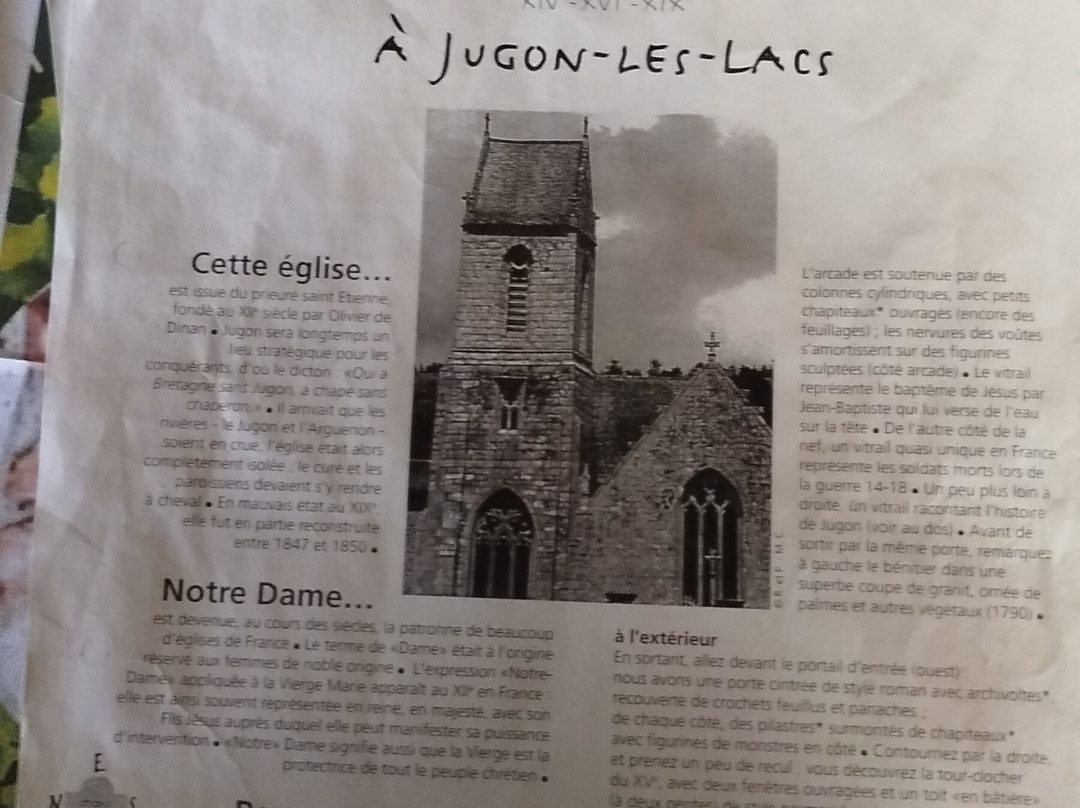 XIVe-XVIe-XIXe
À JUGON-LES-LACS
Cette église...
est issue du prieuré saint Etienne,
fondé au XIIe siècle par Olivier de
Dinan • Jugon sera longtemps un
lieu stratégique pour les
conquérants, d'où le dicton : «Qui a
Bretagne sans Jugon, a chape sans
chaperon.» • Il arrivait que les
rivières - le Jugon et l'Arguenon -
soient en crue, l'église était alors
complètement isolée ; le curé et les
paroissiens devaient s'y rendre
à cheval • En mauvais état au XIXe,
elle fut en partie reconstruite
entre 1847 et 1850 •
Notre Dame...
est devenue, au cours des siècles, la patronne de beaucoup
d'églises de France • Le terme de «Dame» était à l'origine
réservé aux femmes de noble origine • L'expression «Notre-
Dame» appliquée à la Vierge Marie apparaît au XIIe en France :
elle est ainsi souvent représentée en reine, en majesté, avec son
Fils Jésus auprès duquel elle peut manifester sa puissance
d'intervention • «Notre» Dame signifie aussi que la Vierge est la
protectrice de tout le peuple chrétien •
E
N S
L'arcade est soutenue par des
colonnes cylindriques, avec petits
chapiteaux* ouvragés (encore des
feuillages) ; les nervures des voûtes
s'amortissent sur des figurines
sculptées (côté arcade) • Le vitrail
représente le baptême de Jésus par
Jean-Baptiste qui lui verse de l'eau
sur la tête • De l'autre côté de la
nef, un vitrail quasi unique en France
représente les soldats morts lors de
la guerre 14-18 • Un peu plus loin à
droite, un vitrail racontant l'histoire
de Jugon (voir au dos) • Avant de
sortir par la même porte, remarquez
à gauche le bénitier dans une
superbe coupe de granit, ornée de
palmes et autres végétaux (1790) •
à l'extérieur
En sortant, allez devant le portail d'entrée (ouest) :
nous avons une porte cintrée de style roman avec archivoltes*,
recouverte de crochets feuillus et panaches ;
de chaque côté, des pilastres* surmontés de chapiteaux*
avec figurines de monstres en côté • Contournez par la droite,
et prenez un peu de recul : vous découvrez la tour-clocher
du XVe, avec deux fenêtres ouvragées et un toit «en bâtière»
(à deux pentes)